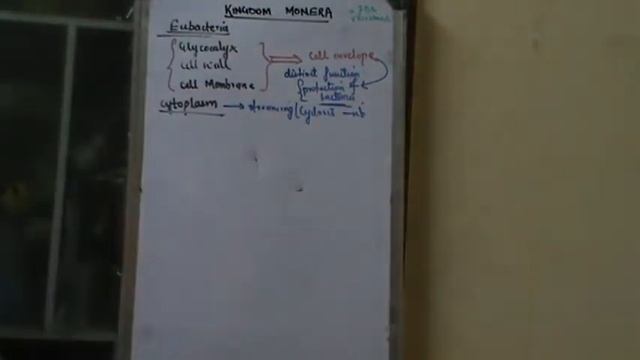 KINGDOM MONERA
Eubacteria
Glycocalyx
cell wall
cell Membrane
cell envelope
distinct function
protection of
bacteria
cytoplasm → streaming/Cyclosis